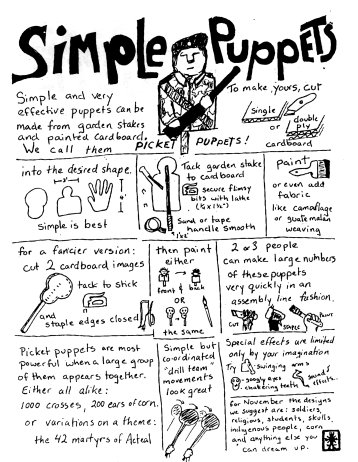 Simple Puppets
Simple and very
effective puppets can be
made from garden stakes
and painted cardboard.
We call them
PICKET PUPPETS!
To make yours, cut
single
or
double
ply
cardboard
into the desired shape.
simple is best
Tack garden stake
to cardboard
secure flimsy
bits with lathe
Sand or tape
handle smooth
1"x2"
paint
or even add
fabric
like camoflage
or guatemalan
weaving
for a fancier version:
cut 2 cardboard images
tack to stick
and
staple edges closed
then paint
either
front & back
OR
the same
2 or 3 people
can make large numbers
of these puppets
very quickly in an
assembly line fashion.
CUT
STAPLE
PAINT
Picket puppets are most
powerful when a large group
of them appears together.
Either all alike:
1000 crosses, 200 ears of corn.
or variations on a theme:
the 42 martyrs of Acteal
Simple but
co-ordinated
"drill team"
movements
look great
Special effects are limited
only by your imagination
Try
swinging arms
googly eyes
chattering teeth
sound
effects..
for November the designs
we suggest are: soldiers,
religious, students, skulls,
indigenous people, corn
and anything else you
can dream up.